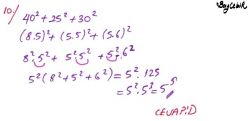 Baycetin
10/ 40² + 25² + 30²
(8.5)² + (5.5)² + (5.6)²
8².5² + 5².5² + 5².6²
5²(8²+5²+6²) = 5².125
= 5².5³ = 5⁵
CEVAP:D